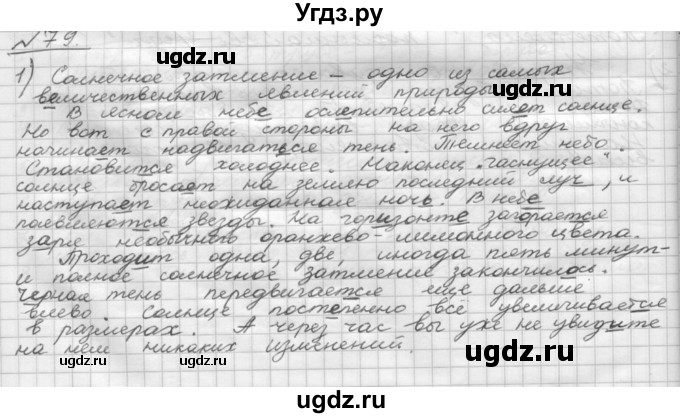 Угдз.ру
№79.
1) Солнечное затмение – одно из самых
величественных явлений природы.
В ясном небе ослепительно сияет солнце.
Но вот с правой стороны на него вдруг
начинает надвигаться тень. Темнеет небо.
Становится холоднее. Наконец „гаснущее"
солнце бросает на землю последний луч, и
наступает неожиданная ночь. В небе
появляются звезды. На горизонте загорается
заря необычного оранжево-лимонного цвета.
Проходит одна, две, иногда пять минут-
и полное солнечное затмение закончилось.
Черная тень передвигается еще дальше
влево. Солнце постепенно всё увеличивается
в размерах. А через час вы уже не увидите
на нем никаких изменений.
ugdz.ru
ugdz.ru
ugdz.ru
ugdz.ru
ugdz.ru
ugdz.ru
ugdz.ru
ugdz.ru
ugdz.ru